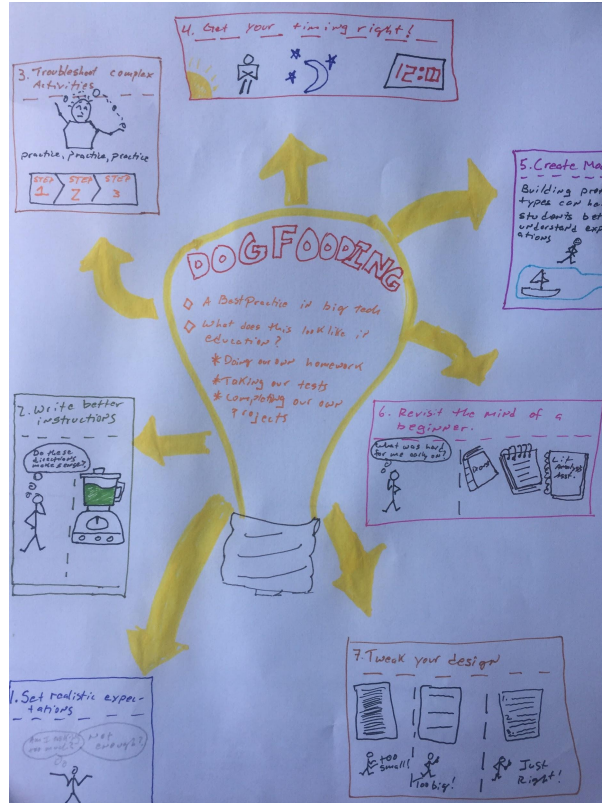 4. Get your timing right!
12:00
3. Troubleshoot complex
Activities
practice, practice, practice
STEP STEP STEP
1 2 3
5. Create
Building
types can
students
understand
ations
DOGFOODING
A Best Practice in big tech
What does this look like in
education?
* Doing our own homework
* Taking our tests
* Completing our own
projects
2. Write better
instructions
Do these
directions
make sense?
6. Revisit the mind of a
beginner.
What was hard
for me early on?
Lit
Analysis
Asst.
1. Set realistic expec-
tations
Am I asking
too much?
Not
enough?
7. Tweak your design
too
small!
Too big!
Just
Right!